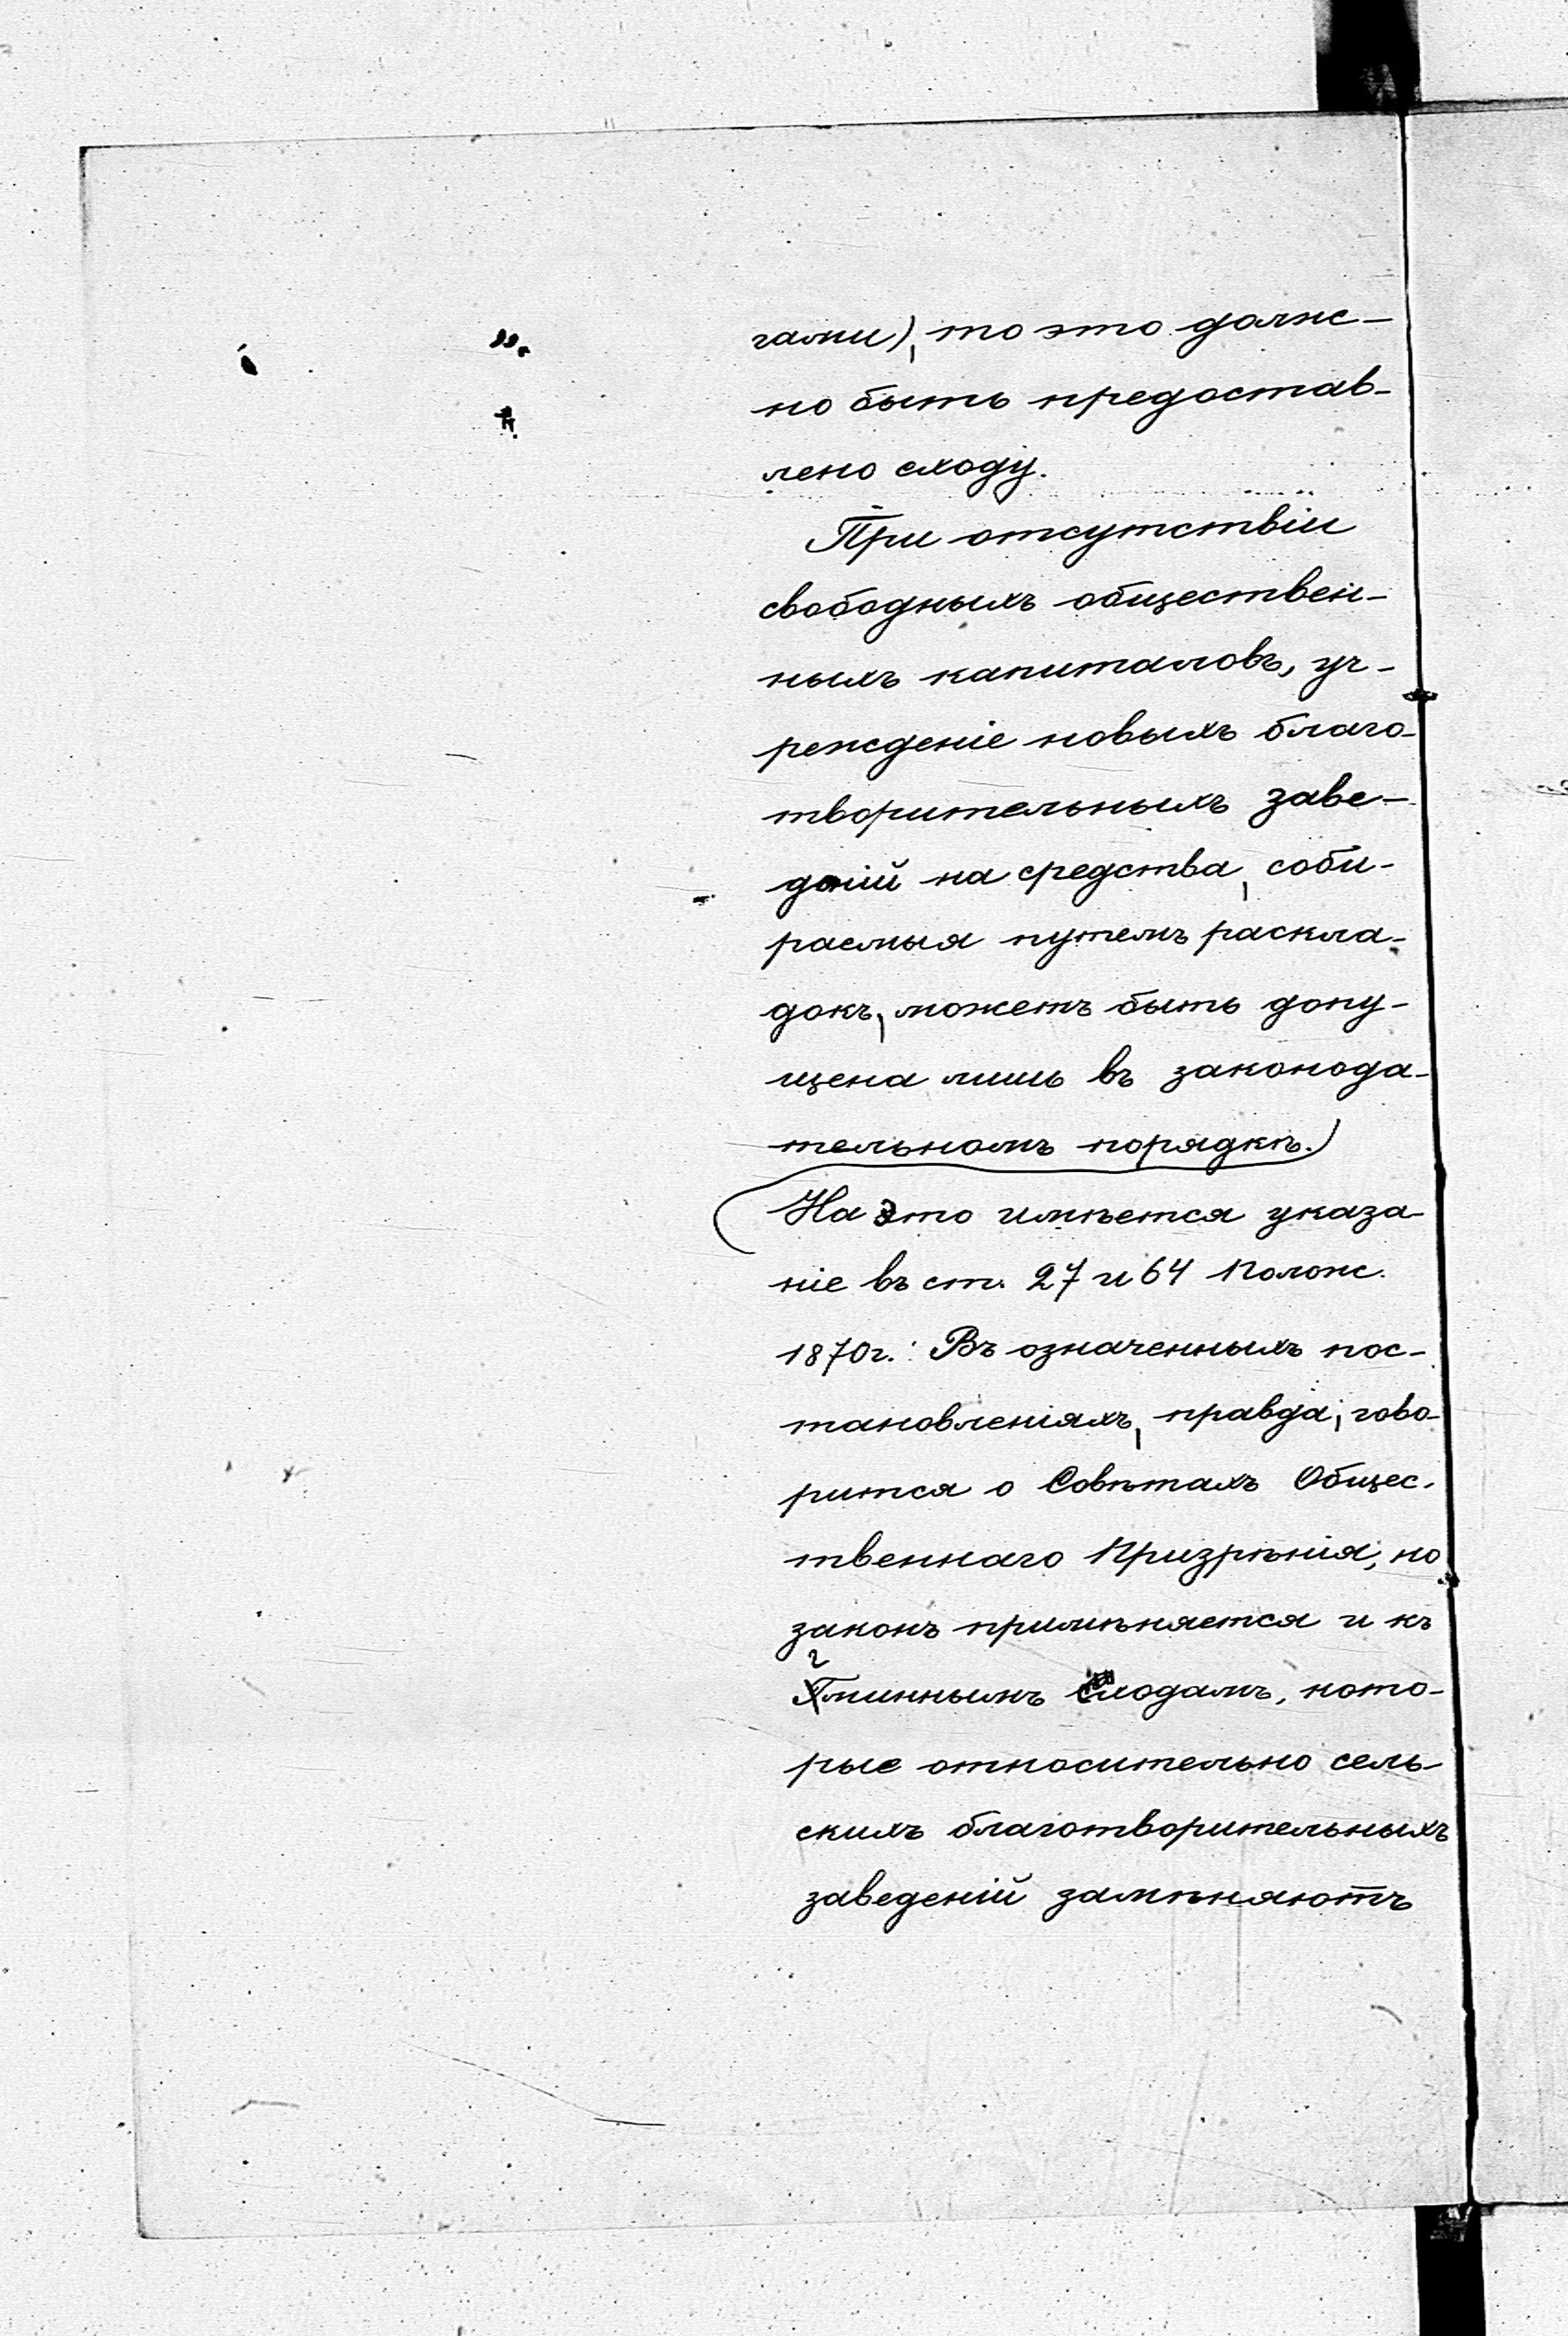 гами), то это долж-
но быть предостав-
лено сходу.
При отсутствіи
свободныхъ обществен-
ныхъ капиталовъ, уч-
режденіе новыхъ благо-
творительныхъ заве-
деній на средства, соби-
раемыя путемъ раскла-
докъ, можетъ быть допу-
щена лишь въ законода-
тельномъ порядкѣ.)
На это имѣется указа-
ніе въ ст. 27 и 64 Полож.
1870г.: Въ означенныхъ пос-
тановленіяхъ, правда, гово-
рится о Совѣтахъ Общес-
твеннаго Призрѣнія, но
законъ примѣняется и къ
гминнымъ сходамъ, кото-
рые относительно сель-
скихъ благотворительныхъ
заведеній замѣняютъ